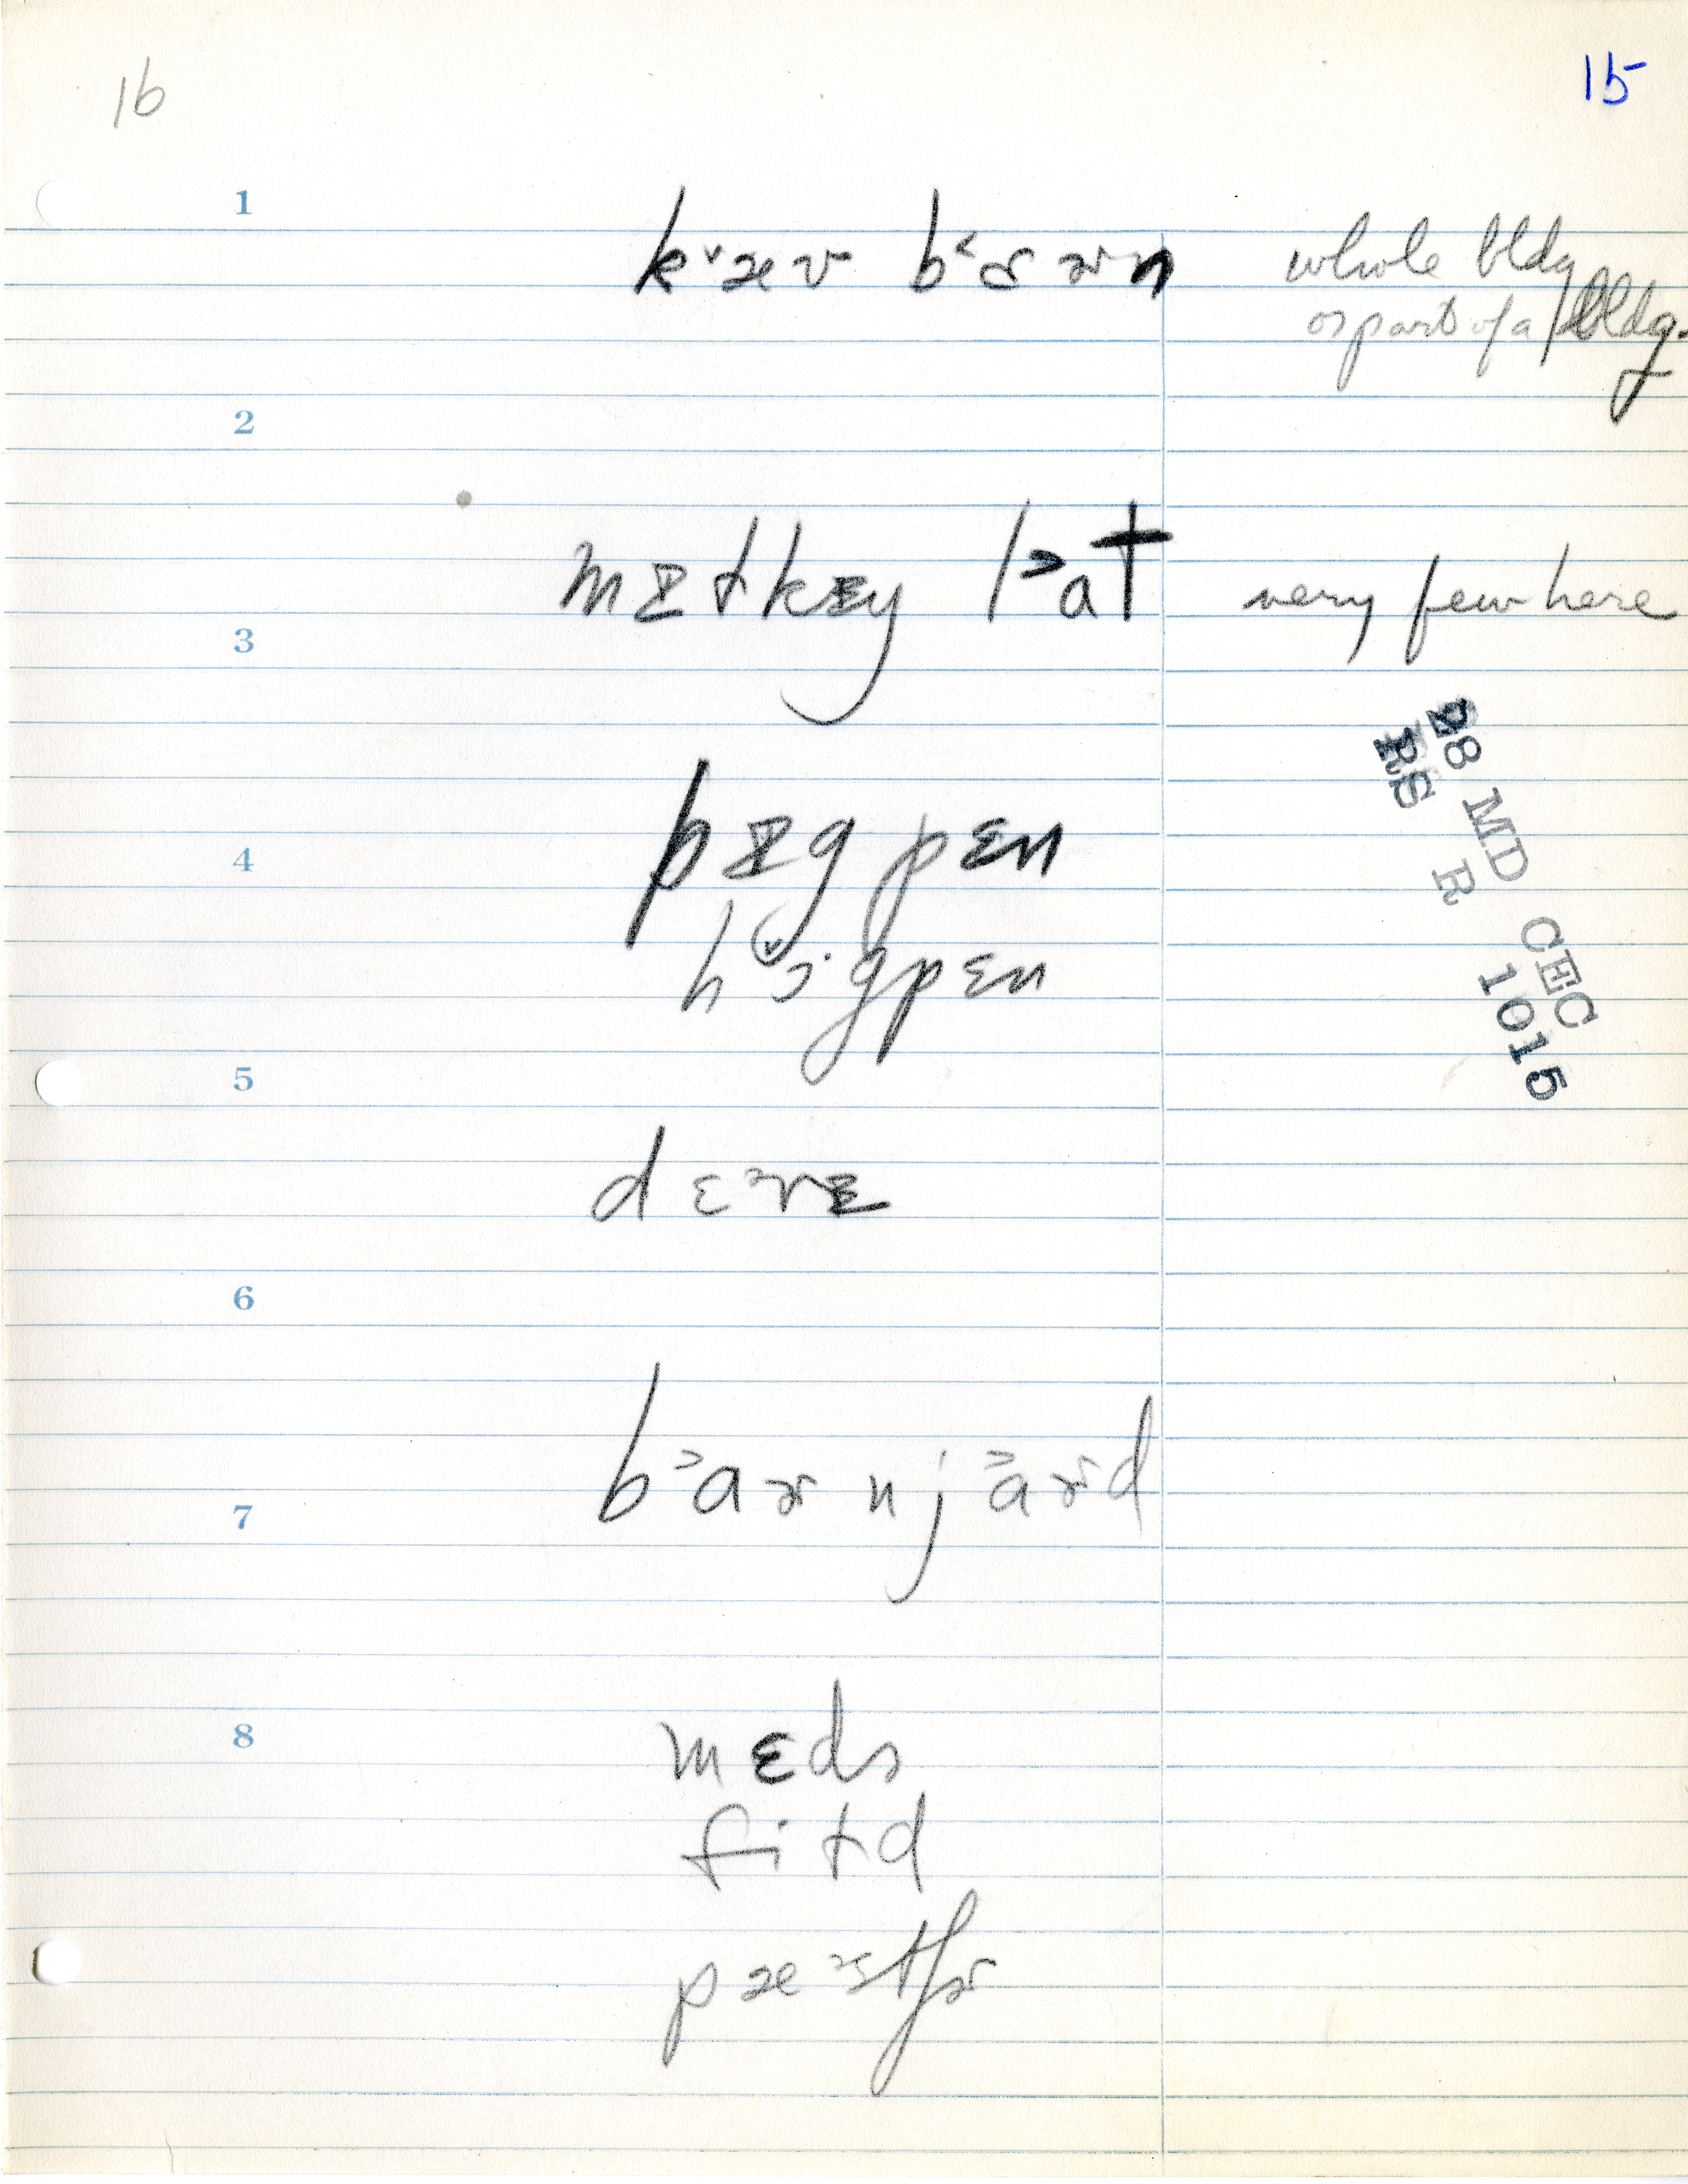 16
15
1
k˅æʊ b˂ɔɚn whole bldg
or part of a bldg.
2
mɪɫkɪy l˃at very few here
3
28 MD CEC
RS R 1015
pɪgpɛn
4
hɔ˅·gpɛn
5
dɛɚɪ
6
b˃aɚnj˃aɚd
7
mɛdə
8
fiɫd
pæstʃɚ